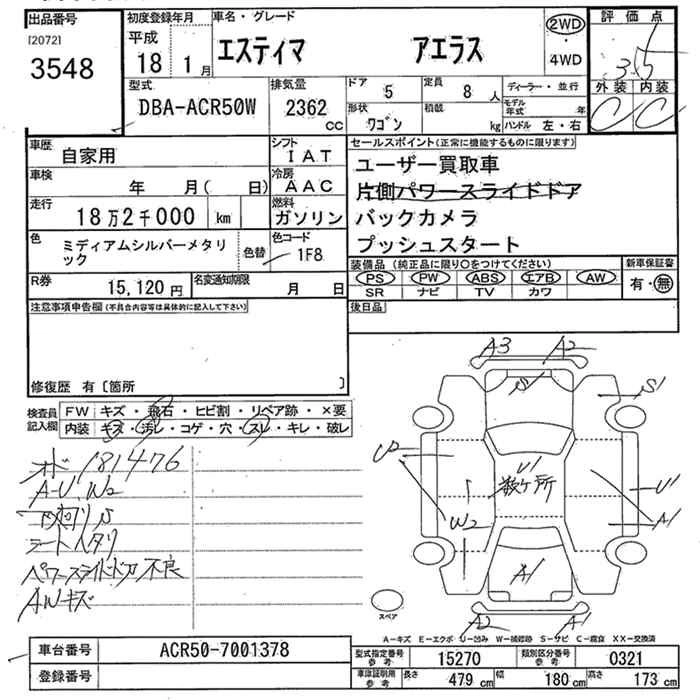 出品番号
[2072]
3548
初度登録年月
平成
18 1 月
車名・グレード
エスティマ アエラス
2WD
・
4WD
評価点
3.5
外装 内装
C C
型式
DBA-ACR50W
排気量
2362
CC
ドア 5
定員 8 人
形状 ワゴン
積載 kg
ディーラー・並行
モデル年式 年
ハンドル 左・右
車歴
自家用
シフト
IAT
車検
年 月( 日)
冷房
AAC
走行
18万2千000 km
燃料
ガソリン
色
ミディアムシルバーメタリック
色替
色コード
1F8
R券
15,120 円
名変通知期限
月 日
セールスポイント(正常に機能するものに限ります)
ユーザー買取車
片側パワースライドドア
バックカメラ
プッシュスタート
装備品(純正品に限り○をつけてください)
PS PW ABS エアB AW
SR ナビ TV カワ
新車保証書
有・無
後日品
注意事項申告欄(不具合内容等は具体的に記入して下さい)
修復歴 有〔箇所 〕
検査員記入欄
FW キズ・飛石・ヒビ割・リペア跡・×要
内装 キズ・汚レ・コゲ・穴・スレ・キレ・破レ
オド 181476
A-U, W2
下廻り S
シートヘタリ
パワースライドドア不良
AWキズ
A3 A2
S
S1
U2
U1
数ヶ所
U1
A1
W2
A1
A2 A1
スペア
A-キズ E-エクボ U-凹み W-補修跡 S-サビ C-腐食 XX-交換済
車台番号 ACR50-7001378
登録番号
型式指定番号 参考 15270
類別区分番号 参考 0321
車庫証明用 参考
長さ 479 cm 幅 180 cm 高さ 173 cm